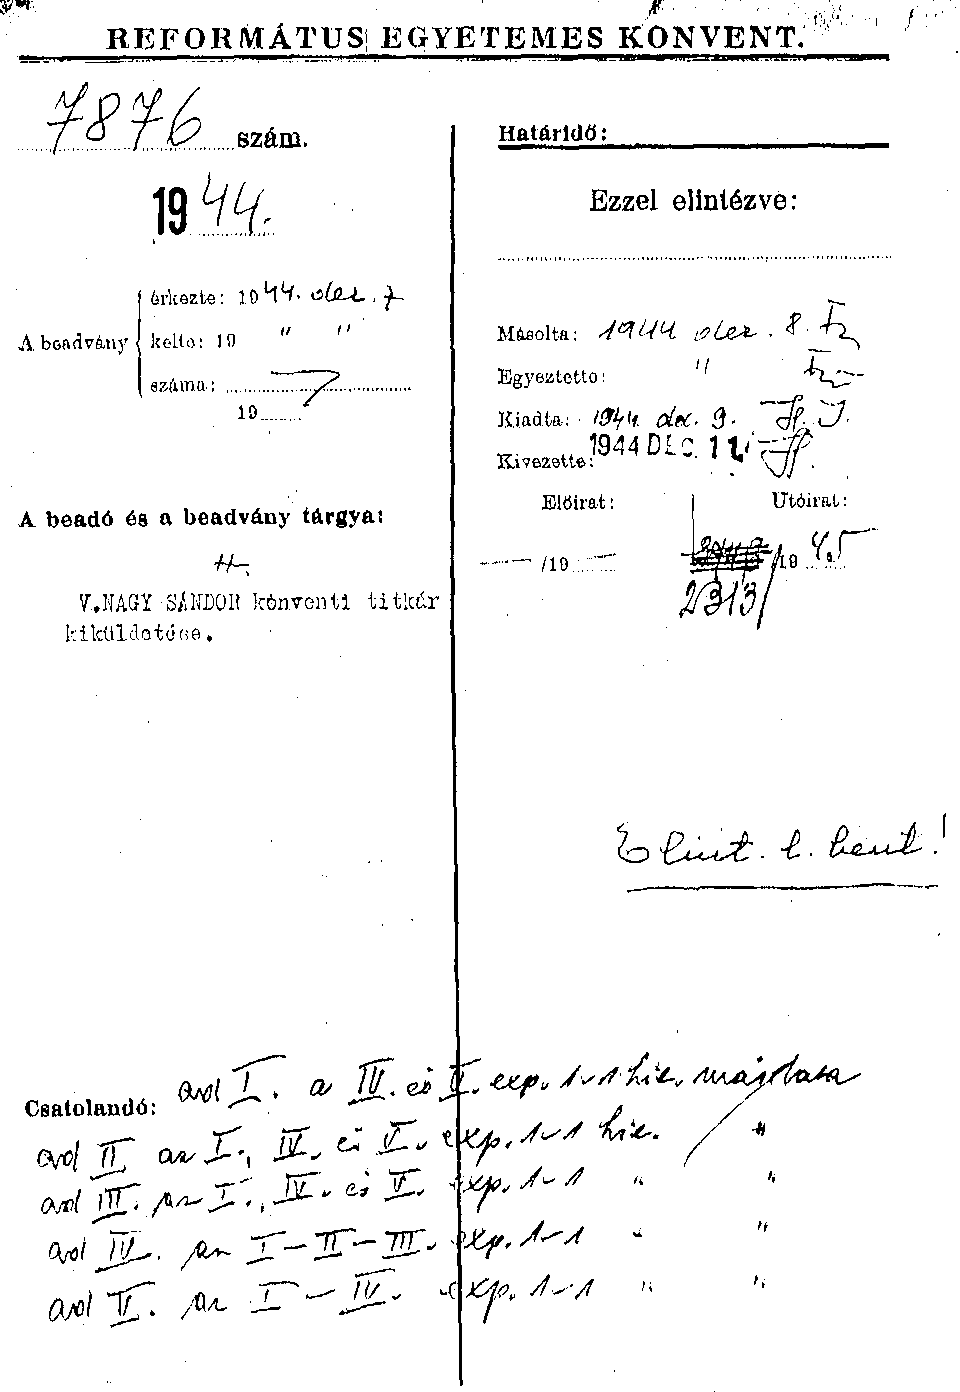 REFORMÁTUS EGYETEMES KONVENT.
7876 szám.
1944.
A beadvány
érkezte: 1944. dec. 7
kelte: 19 " "
száma: 7
19
A beadó és a beadvány tárgya:
V.NAGY SÁNDOR konventi titkár
kiküldetése.
Határidő:
Ezzel elintézve:
Másolta: 1944 dec. 8.
Egyeztette: "
Kiadta: 1944. dec. 9.
Kivezette: 1944 DEC. 11.
Előirat:
— /19 —
Utóirat:
/19 45
2313/
Elint. l. bent!
Csatolandó: ad I. a IV. és V. exp. 1-1 hit. másolata
ad II az I., IV. és V. exp. 1-1 hit. "
ad III. az I., IV. és V. exp. 1-1 " "
ad IV. az I-II-III. exp. 1-1 " "
ad V. az I-IV. exp. 1-1 " "